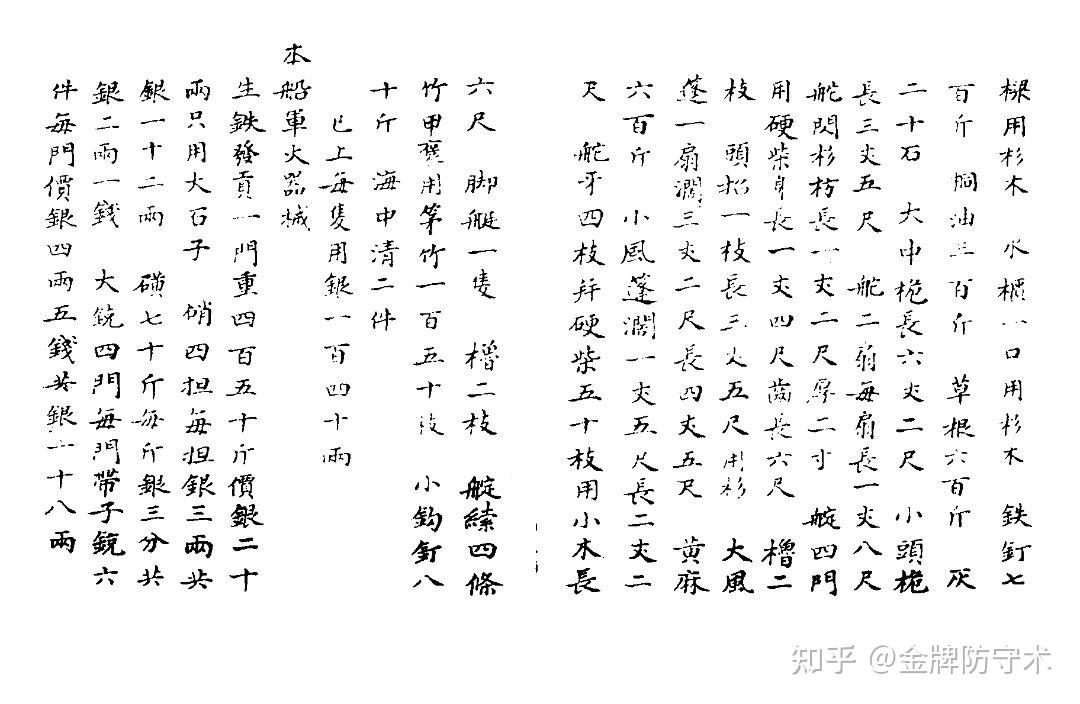 樑用杉木　水櫃一口用杉木　鉄釘七
百斤　桐油三百斤　草根六百斤　灰
二十石　大中桅長六丈二尺　小頭桅
長三丈五尺　舵二扇每扇長一丈八尺
舵閃杉枋長一丈二尺厚二寸　碇四門
用硬柴身長一丈四尺齒長六尺　櫓二
枝　頭招一枝長三丈五尺用杉　大風
蓬一扇濶三丈二尺長四丈五尺　黃麻
六百斤　小風蓬濶一丈五尺長二丈二
尺　舵牙四枝幷硬柴五十枝用小木長
六尺　脚艇一隻　櫓二枝　碇繚四條
竹甲䕨用第竹一百五十枝　小鈎釘八
十斤　海中清二件
已上每隻用銀一百四十兩
本船軍火器械
生鉄發貢一門重四百五十斤價銀二十
兩只用大石子　硝四担每担銀三兩共
銀一十二兩　磺七十斤每斤銀三分共
銀二兩一錢　大銃四門每門帶子銃六
件每門價銀四兩五錢共銀一十八兩
知乎 @金牌防守术